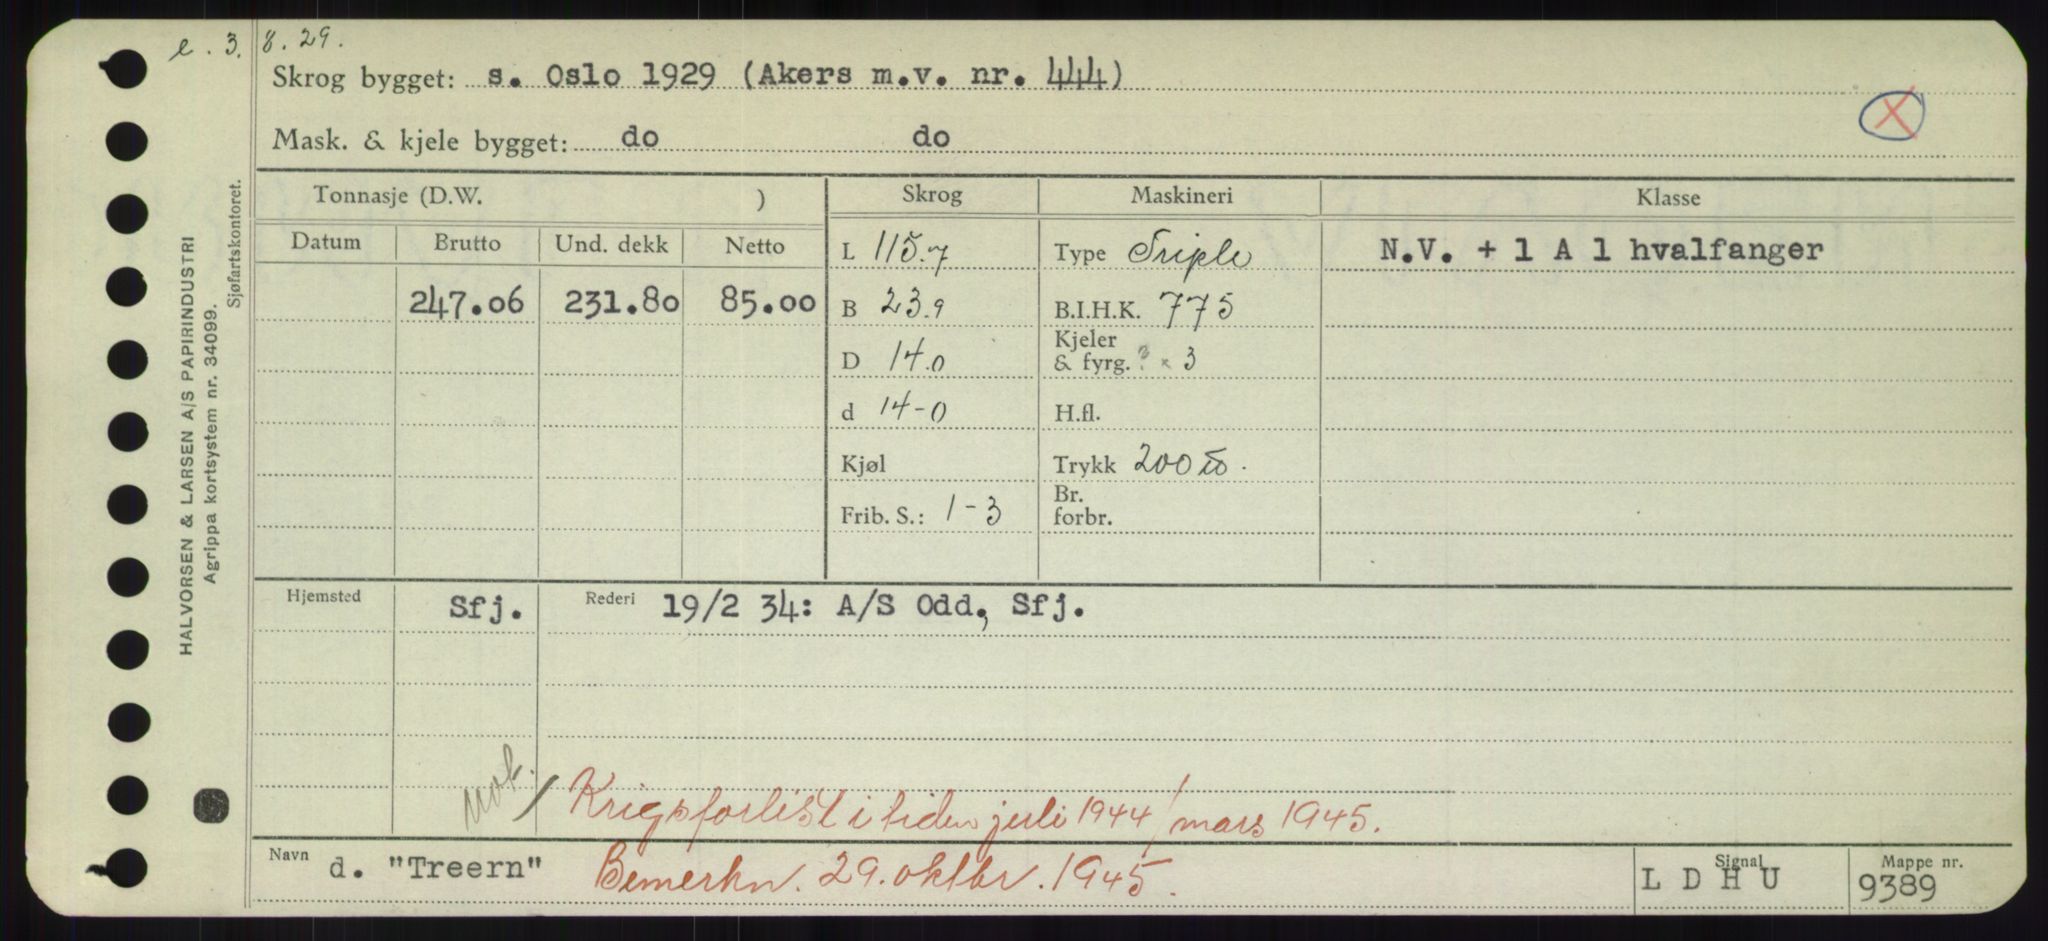 e. 3. 8. 29.
Skrog bygget: s. Oslo 1929 (Akers m.v. nr. 444)
Mask. & kjele bygget: do do
Tonnasje (D.W. )
Skrog
Maskineri
Klasse
Datum Brutto Und. dekk Netto
247.06 231.80 85.00
L 115.7
B 23.9
D 14.0
d 14-0
Kjøl
Frib. S.: 1-3
Type Triple
B.I.H.K. 775
Kjeler
& fyrg. ? x 3
H.fl.
Trykk 200 lb.
Br.
forbr.
N.V. + 1 A 1 hvalfanger
Hjemsted Sfj. Rederi 19/2 34: A/S Odd, Sfj.
Krigsforlist i tiden juli 1944/mars 1945.
Navn d. "Treern" Bemerkn. 29. oktbr. 1945.
Signal
L D H U
Mappe nr.
9389
HALVORSEN & LARSEN A/S PAPIRINDUSTRI
Agrippa kortsystem nr. 34099.
Sjøfartskontoret.